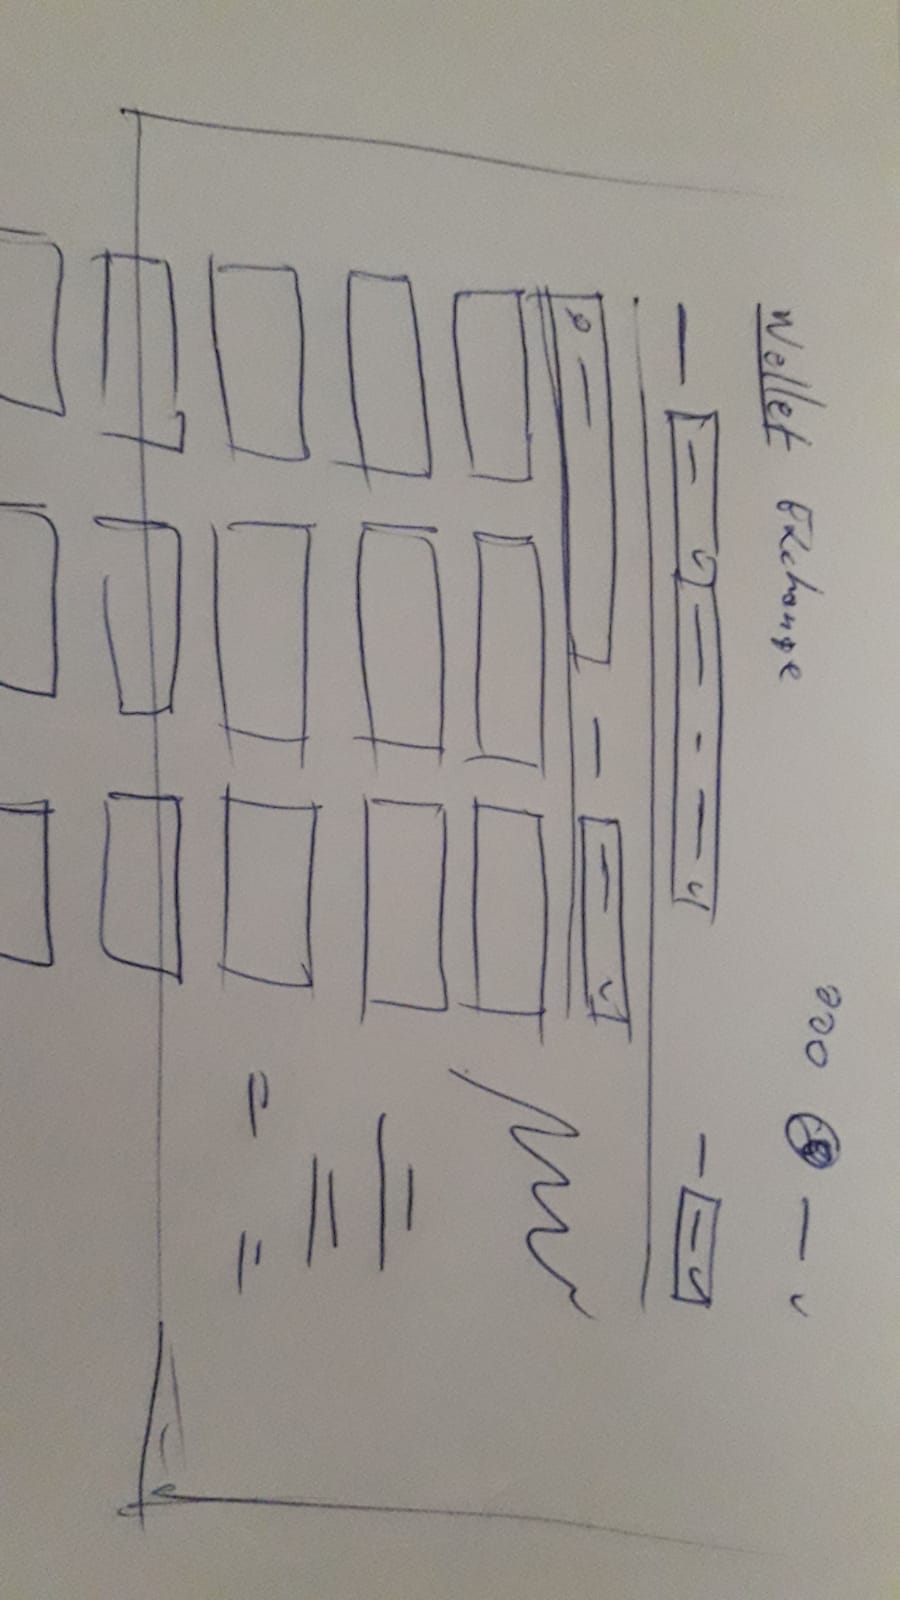 Wallet Exchange